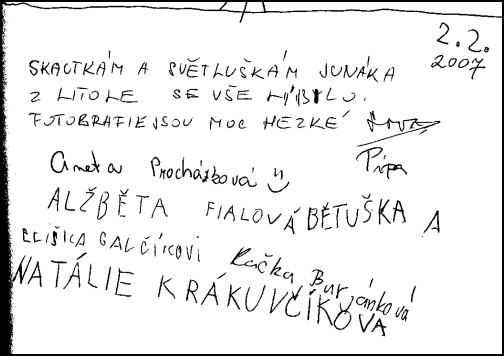 2.2.
2007
SKAUTKÁM A SVĚTLUŠKÁM JUNÁKA
Z LITOLE SE VŠE LÍBILO.
FOTOGRAFIE JSOU MOC HEZKÉ
Pípa
Aneta Procházková :)
ALŽBĚTA FIALOVÁ BĚTUŠKA A
ELIŠKA GALČÍKOVI Kačka Burjánková
NATÁLIE KRÁKUVČÍKOVA